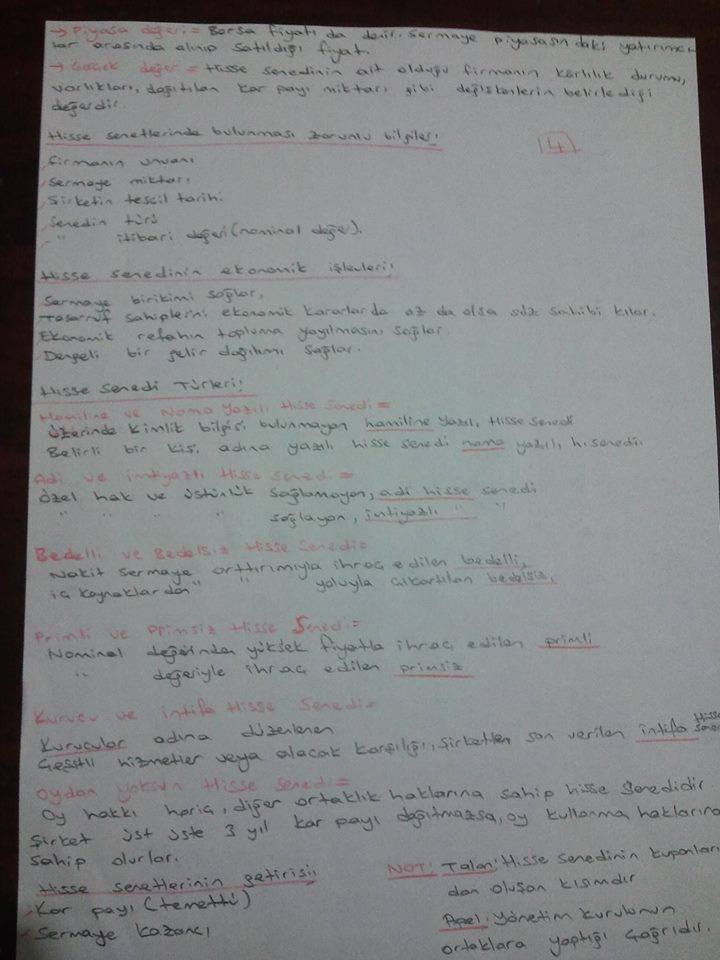 → Piyasa değeri = Borsa fiyatı da denir. Sermaye piyasasındaki yatırımcı
lar arasında alınıp satıldığı fiyat.
→ Gerçek değer = Hisse senedinin ait olduğu firmanın karlılık durumu,
varlıkları, dağıtılan kar payı miktarı gibi değişkenlerin belirlediği
değerdir.
Hisse senetlerinde bulunması zorunlu bilgiler!
4
Firmanın unvanı
Sermaye miktarı
Şirketin tescil tarihi.
Senedin türü
" itibari değeri (nominal değer).
Hisse senedinin ekonomik işlevleri!
Sermaye birikimi sağlar.
Tasarruf sahiplerini ekonomik kararlarda az da olsa söz sahibi kılar.
Ekonomik refahın topluma yayılmasını sağlar.
Dengeli bir gelir dağılımı sağlar.
Hisse Senedi Türleri!
Hamiline ve Nama Yazılı Hisse Senedi =
Üzerinde kimlik bilgisi bulunmayan hamiline yazılı, Hisse Senedi
Belirli bir kişi adına yazılı hisse senedi nama yazılı, h. senedi.
Adi ve imtiyazlı Hisse Senedi =
Özel hak ve üstünlük sağlamayan, adi hisse senedi
" " " " sağlayan, imtiyazlı " "
Bedelli ve Bedelsiz Hisse Senedi =
Nakit sermaye arttırımıyla ihraç edilen bedelli,
iç kaynaklardan " " yoluyla çıkartılan bedelsiz.
Primli ve Primsiz Hisse Senedi =
Nominal değerinden yüksek fiyatla ihraç edilen primli
" değeriyle ihraç edilen primsiz
Kurucu ve intifa Hisse Senedi =
Kurucular adına düzenlenen
Çeşitli hizmetler veya alacak karşılığı, şirketten verilen intifa Hisse
Oydan Yoksun Hisse Senedi =
Oy hakkı hariç, diğer ortaklık haklarına sahip hisse Senedidir
Şirket üst üste 3 yıl kar payı dağıtmazsa, oy kullanma haklarına
sahip olurlar.
Hisse senetlerinin getirisi!
Kar payı (temettü)
Sermaye kazancı
NOT! Talon! Hisse senedinin kuponları
dan oluşan kısımdır
Apel: Yönetim kurulunun
ortaklara yaptığı çağrıdır.